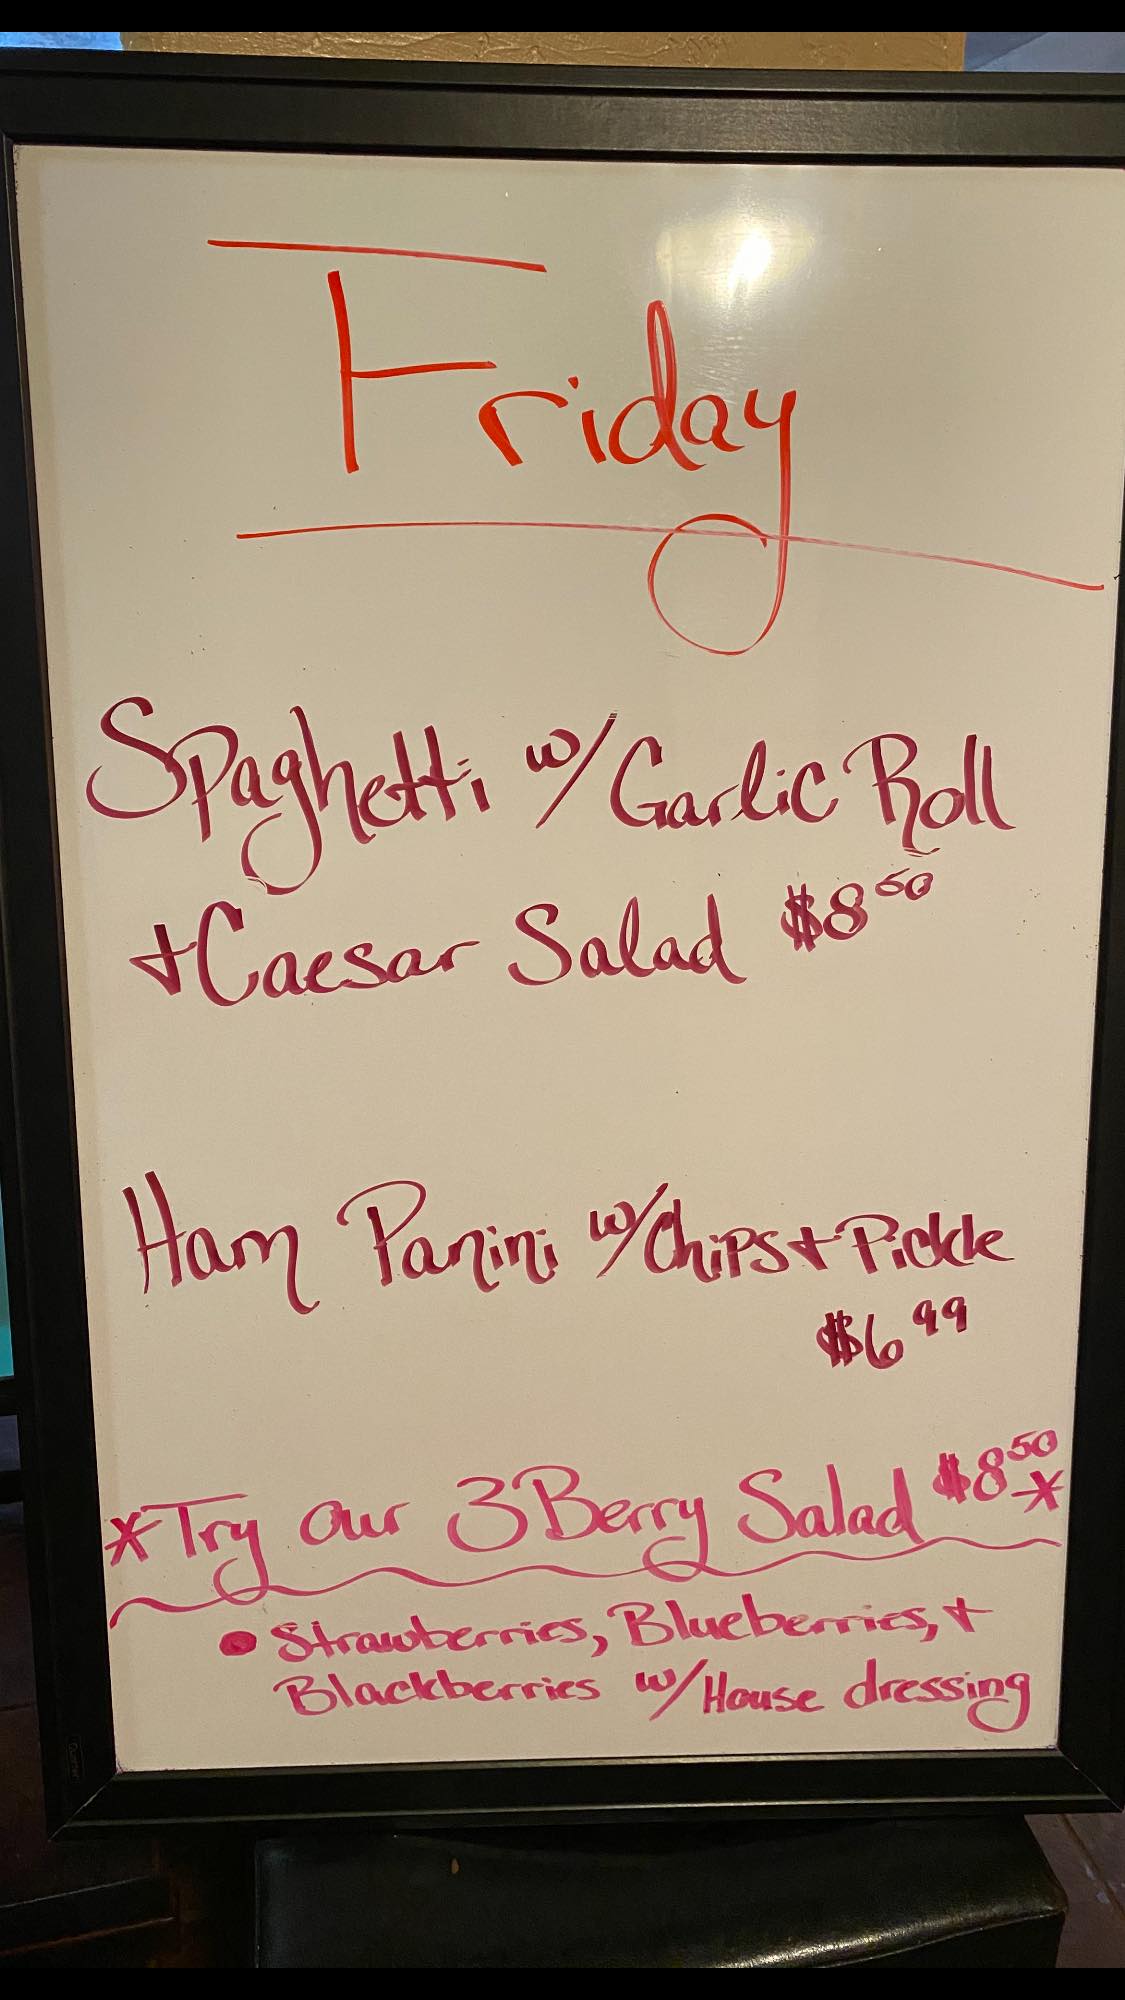 Friday
Spaghetti w/ Garlic Roll
+ Caesar Salad $8.50
Ham Panini w/ Chips + Pickle
$6.99
*Try our 3 Berry Salad $8.50*
• Strawberries, Blueberries, +
Blackberries w/ House dressing
Quartet